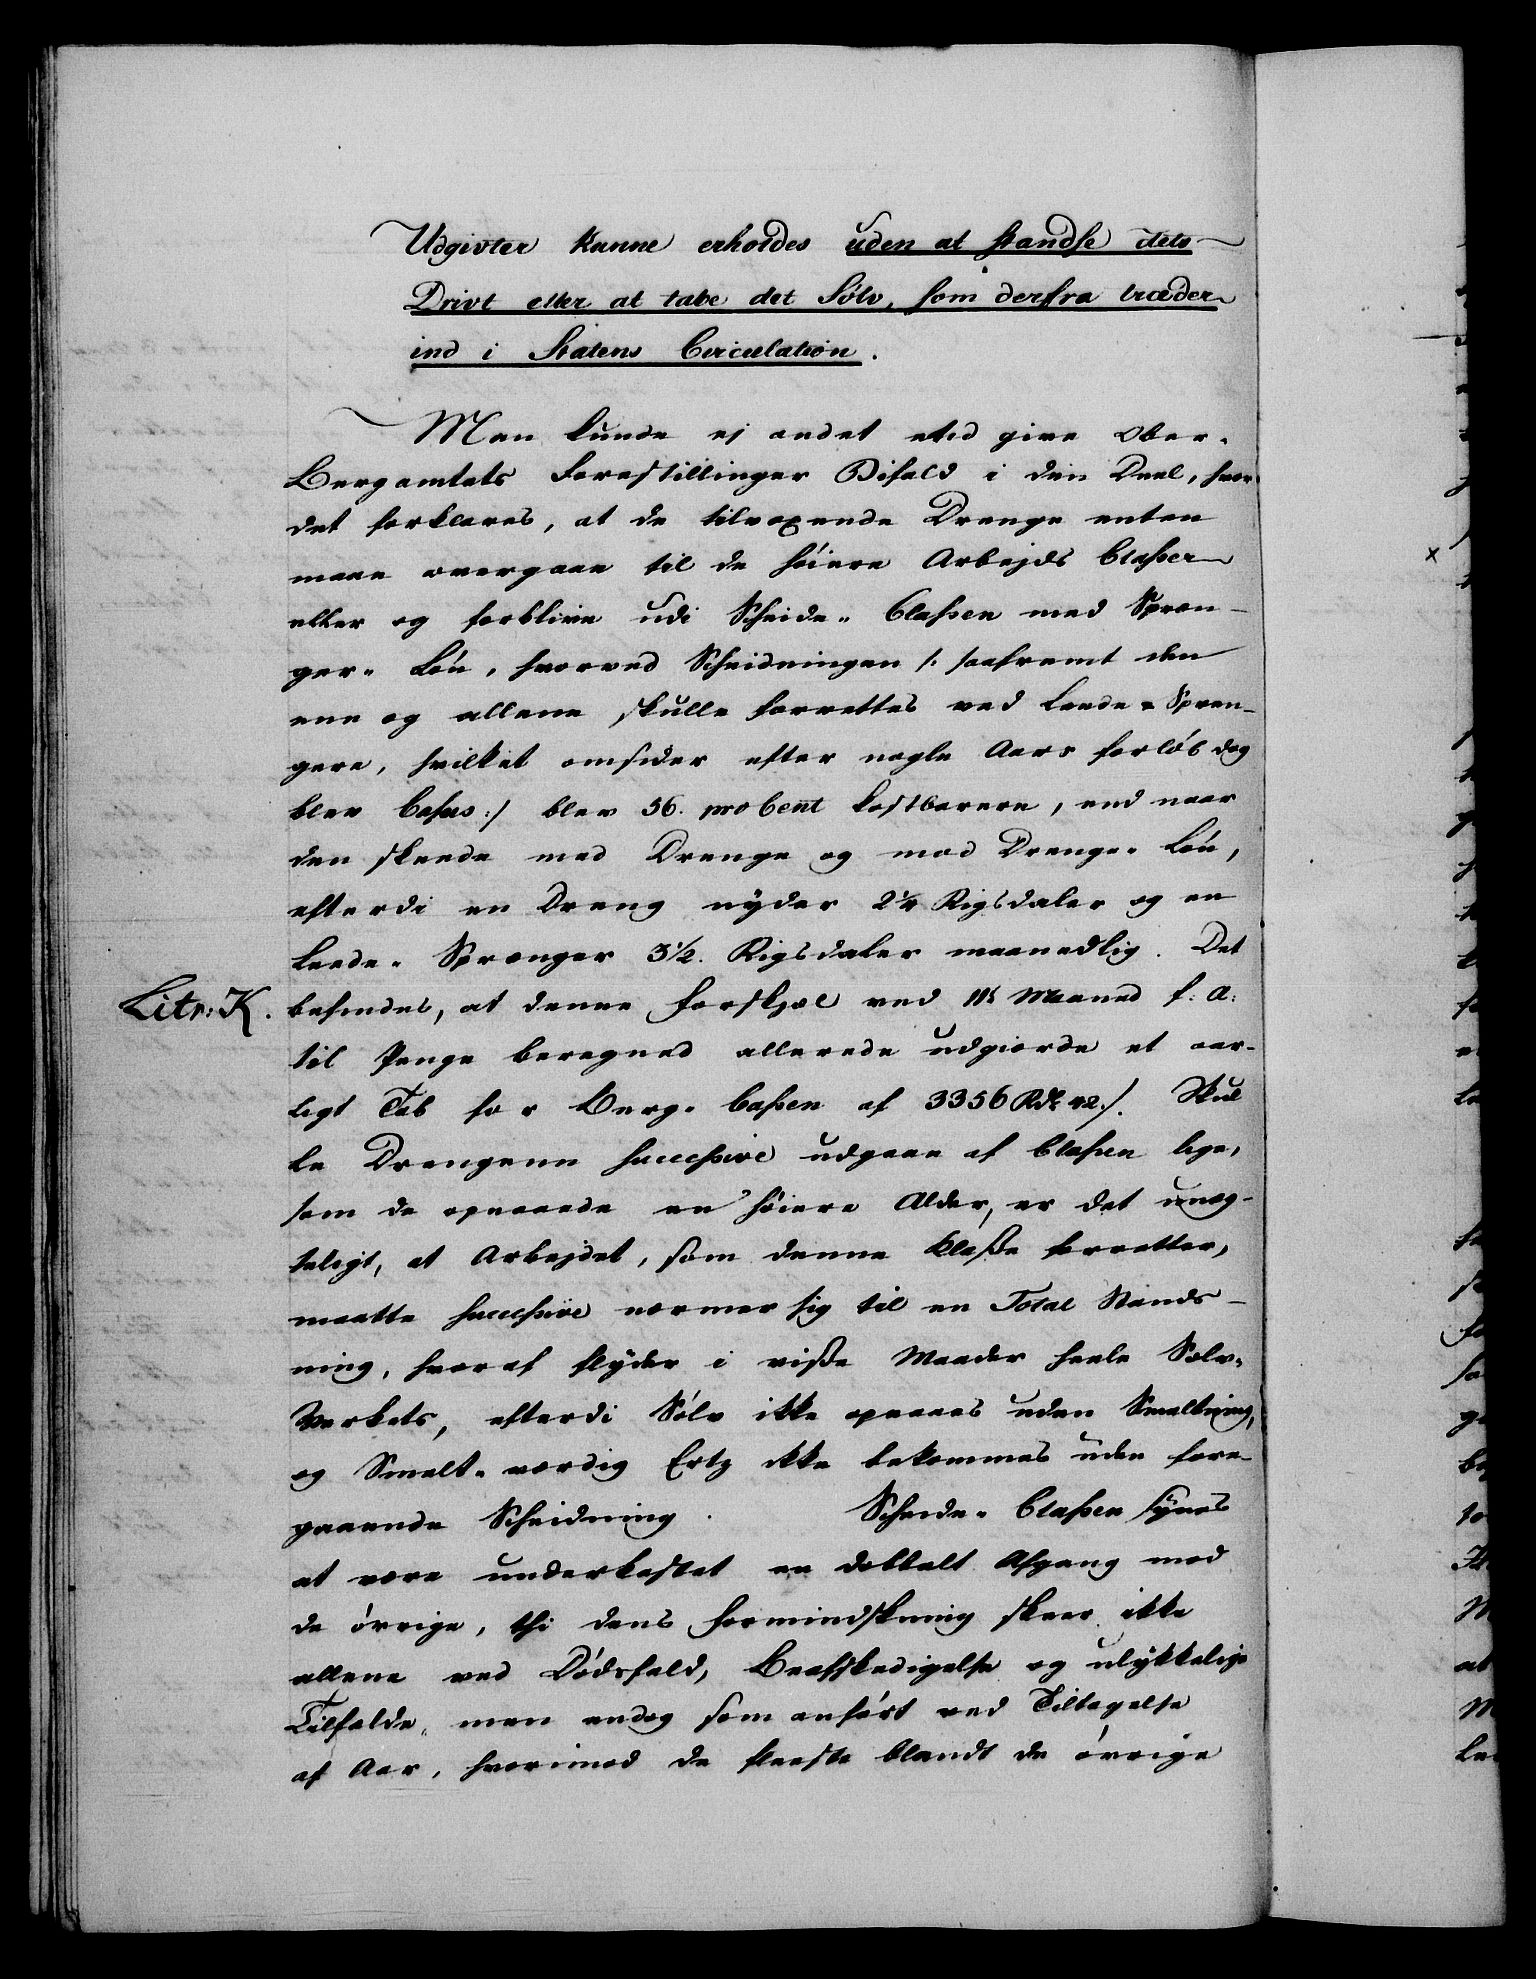 Udgivter kunne erholdes uden at standse dets
Drivt eller at tabe det Sølv, som derfra træder
ind i Statens Circulation.
Man kunde ej andet end give Ober-
Bergamtets Forestillinger Bifald i den Deel, hvor
det forklares, at de tilvoxende Drenge enten
maae overgaae til de høiere Arbejds Classer
eller og forblive udi Scheide-Classen med Spræn-
ger-Løn, hvorved Scheidningen /: saafremt den
ene og allene skulle forrettes ved Leede-Spræn-
gere, hvilket omsider efter nogle Aars forløb dog
blev Casus :/ blev 56. pro Cent kostbarere, end naar
den skeede med Drenge og mod Drenge-Løn,
efterdi en Dreng nyder 2 1/4 Rigsdaler og en
Leede-Sprænger 3 1/2. Rigsdaler maanedlig. Det
Litr: K.
befindes, at denne Forskjæl ved Maaned f: A:
til Penge beregned allerede udgiorde et aar-
ligt Tab for Berg-Cassen af 3356 Rdr 42 /. Skul
le Drengene successive udgaae af Classen lige,
som de opnaaede en høiere Alder, er det unæg-
teligt, at Arbejdet, som denne Klasse forretter,
maatte successive nærmer sig til en Total Stands-
ning, hvoraf flyder i visse Maader heele Sølv-
Verkets, efterdi Sølv ikke opnaaes uden Smeltning,
og Smelt-værdig Ertz ikke bekommes uden fore-
gaaende Scheidning. Scheide-Classen synes
at være underkastet en dobbelt Afgang mod
de øvrige, thi dens Formindskning skeer ikke
allene ved Dødsfald, Beafskedigelse og ulykkelige
Tilfælde, men endog som anført ved Tiltagelse
af Aar, hvorimod de fleeste blandt de øvrige